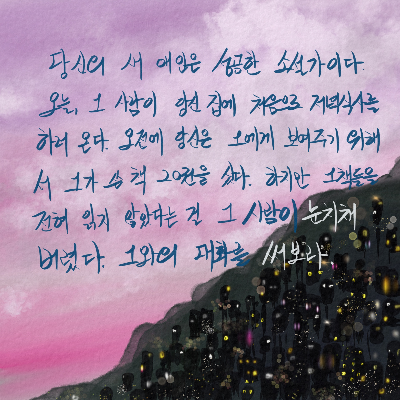 당신의 새 애인은 성공한 소설가이다.
오늘, 그 사람이 당신 집에 처음으로 저녁식사를
하러 온다. 오전에 당신은 그에게 보여주기 위해
서 그가 쓴 책 20권을 샀다. 하지만 그책들을
전혀 읽지 않았다는 걸 그 사람이 눈치채
버렸다. 그와의 대화를 써보라.